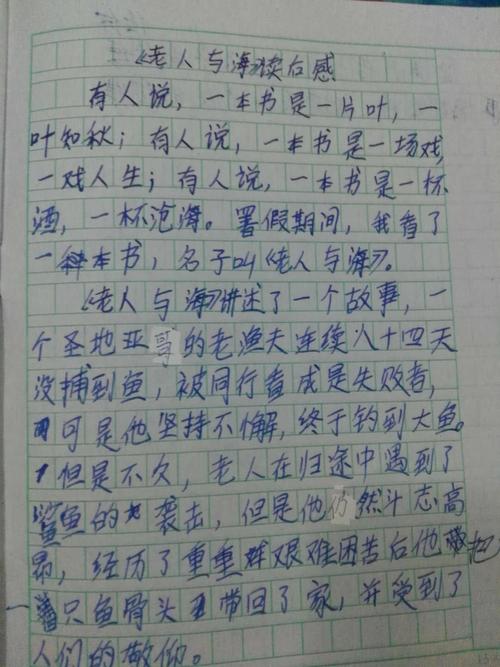 《老人与海》读后感
有人说，一本书是一片叶，一
叶知秋；有人说，一本书是一场戏，
一戏人生；有人说，一本书是一杯
酒，一杯沧海。署假期间，我看了
一本书，名子叫《老人与海》。
《老人与海》讲述了一个故事，一
个圣地亚哥的老渔夫连续八十四天
没捕到鱼，被同行看成是失败者，
可是他坚持不懈，终于钓到大鱼。
但是不久，老人在归途中遇到了
鲨鱼的袭击，但是他仍然斗志高
昂，经历了重重艰难困苦后他把
一只鱼骨头带回了家，并受到了
人们的敬仰。